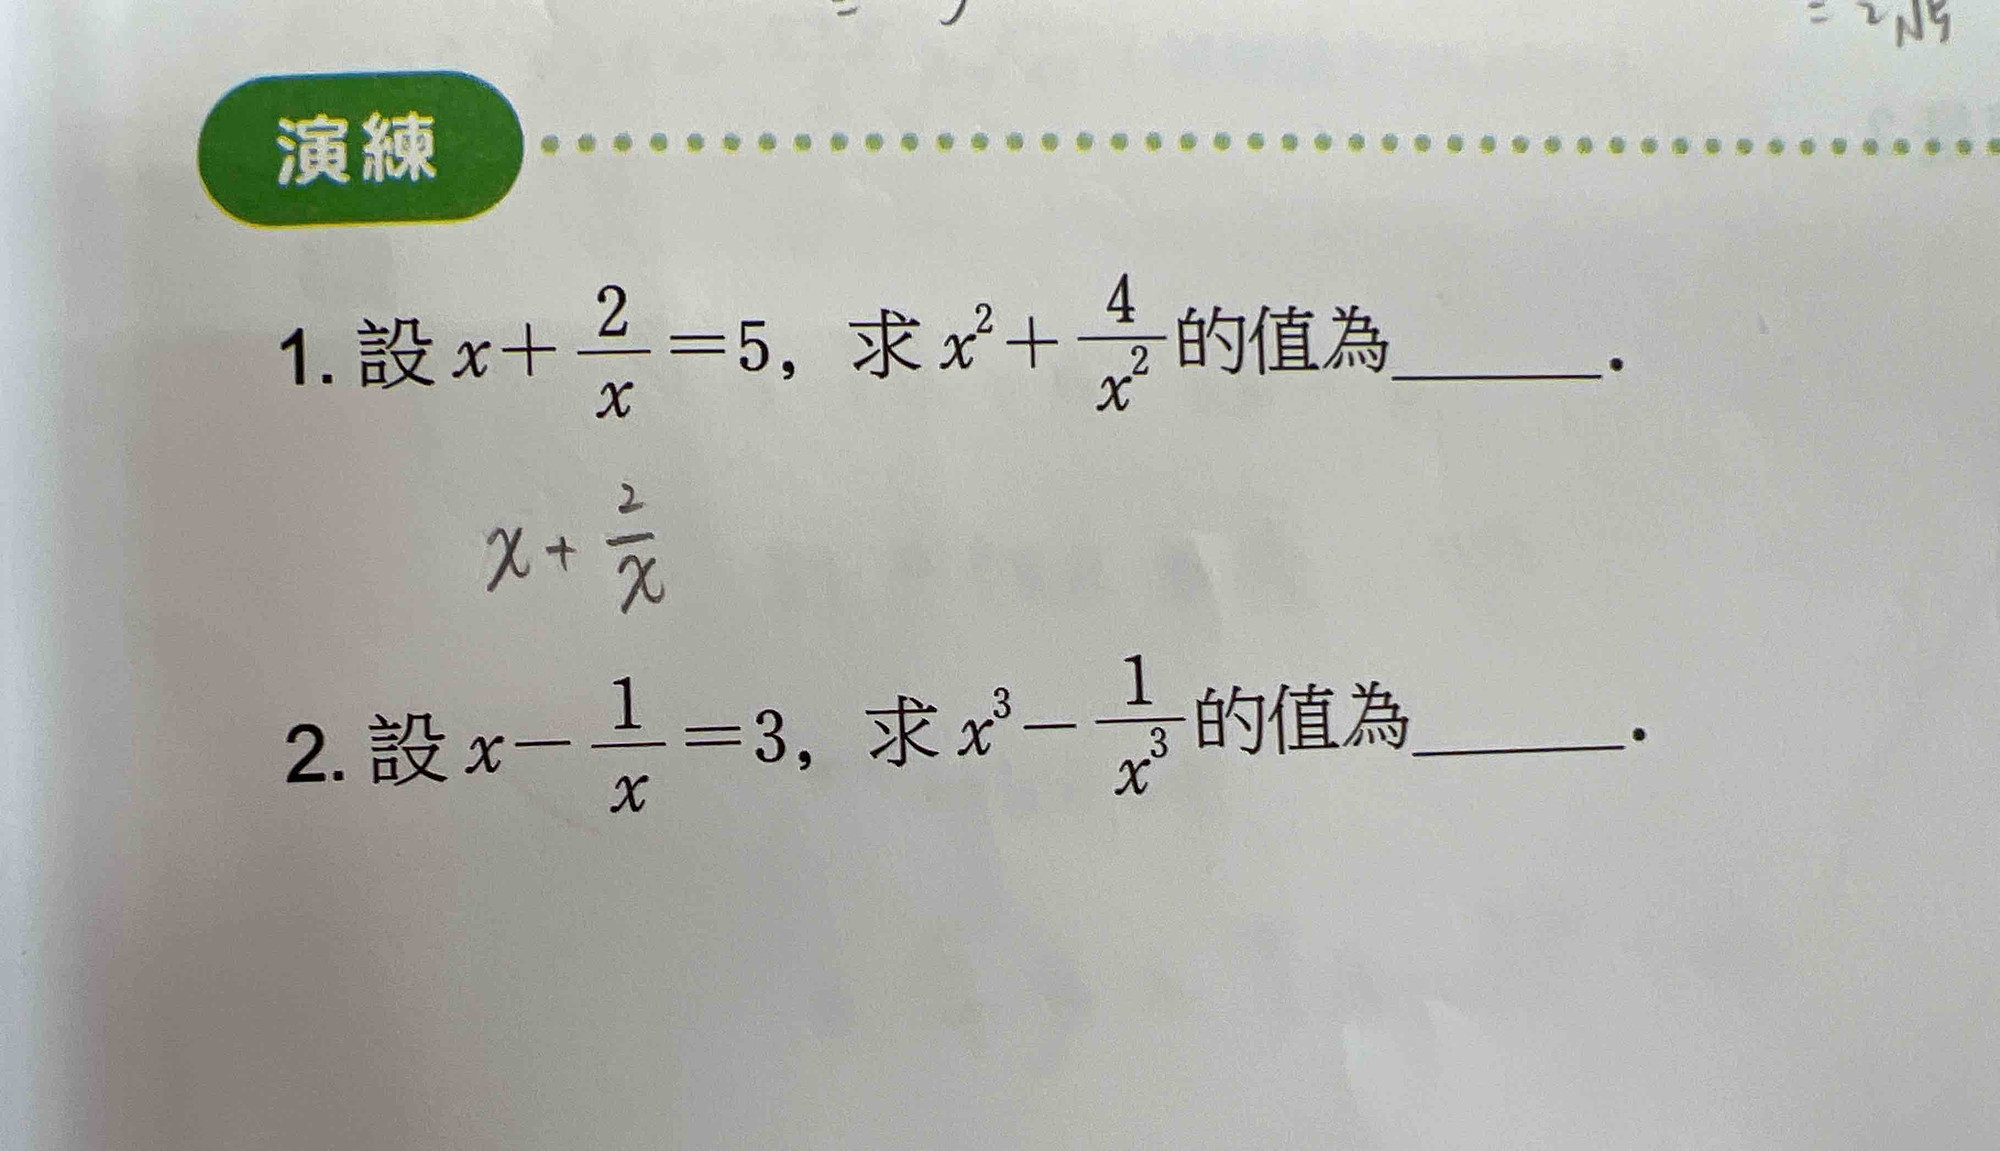 = 2√5
演練
1. 設 x + 2/x = 5, 求 x² + 4/x² 的值為______.
x + 2/x
2. 設 x − 1/x = 3, 求 x³ − 1/x³ 的值為______.